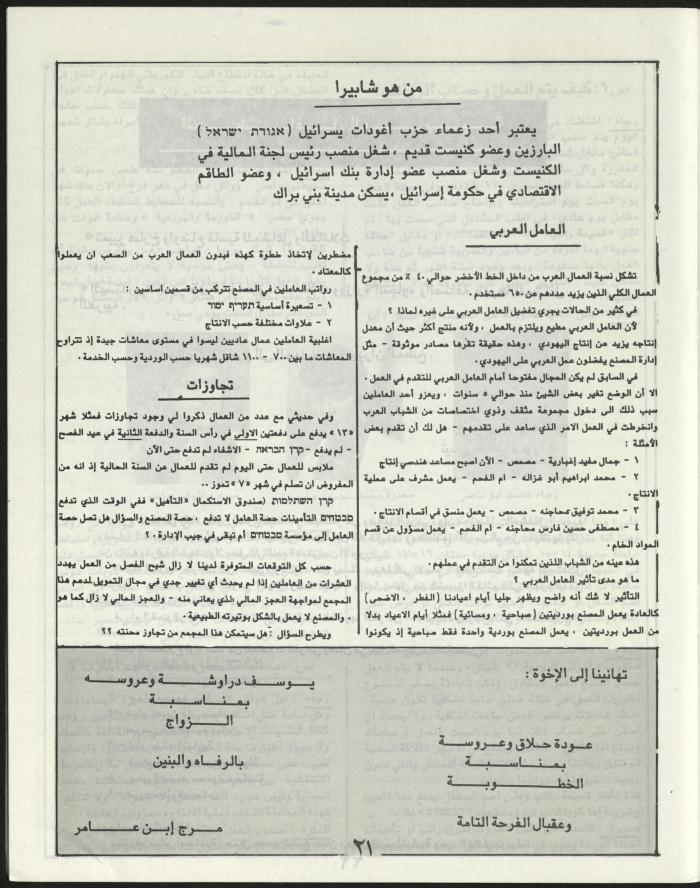 من هو شابيرا
يعتبر أحد زعماء حزب أغودات يسرائيل (אגודת ישראל)
البارزين وعضو كنيست قديم ، شغل منصب رئيس لجنة المالية في
الكنيست وشغل منصب عضو إدارة بنك اسرائيل ، وعضو الطاقم
الاقتصادي في حكومة إسرائيل ، يسكن مدينة بني براك
العامل العربي
تشكل نسبة العمال العرب من داخل الخط الأخضر حوالي ٤٠ ٪ من مجموع
العمال الكلي الذين يزيد عددهم عن ٦٥٠ مستخدم ٠
في كثير من الحالات يجري تفضيل العامل العربي على غيره لماذا ؟
لأن العامل العربي مطيع ويلتزم بالعمل ، ولأنه منتج أكثر حيث أن معدل
إنتاجه يزيد عن إنتاج اليهودي ، وهذه حقيقة تقرها مصادر موثوقة - مثل
إدارة المصنع يفضلون عمل العربي على اليهودي ٠
في السابق لم يكن المجال مفتوحا أمام العامل العربي للتقدم في العمل ٠
الا أن الوضع تغير بعض الشيئ منذ حوالي ٥ سنوات ، ويعزو أحد العاملين
سبب ذلك الى دخول مجموعة مثقف وذوي اختصاصات من الشباب العرب
وانخرطت في العمل الامر الذي ساعد على تقدمهم - هل لك أن تقدم بعض
الأمثلة :
١ - جمال مفيد إغبارية - مصمص - الآن اصبح مساعد هندسي إنتاج
٢ - محمد ابراهيم أبو غزاله - ام الفحم - يعمل مشرف على عملية
الانتاج ٠
٣ - محمد توفيق محاجنه - مصمص - يعمل منسق في أقسام الانتاج ٠
٤ - مصطفى حسين فارس محاجنه - ام الفحم - يعمل مسؤول من قسم
المواد الخام ٠
هذه عينه من الشباب اللذين تمكنوا من التقدم في عملهم ٠
ما هو مدى تأثير العامل العربي ؟
التأثير لا شك أنه واضح ويظهر جليا أيام اعيادنا (الفطر ، الاضحى)
كالعادة يعمل المصنع بورديتين (صباحية ، ومسائية) فمثلا أيام الاعياد بدلا
من العمل بورديتين ، يعمل المصنع بوردية واحدة فقط صباحية إذ يكونوا
مضطرين لاتخاذ خطوة كهذه فبدون العمال العرب من الصعب ان يعملوا
كالمعتاد ٠
رواتب العاملين في المصنع تتركب من قسمين اساسين :
١ - تسعيرة أساسية תעריף יסוד
٢ - علاوات مختلفة حسب الانتاج
اغلبية العاملين عمال عاديين ليسوا في مستوى معاشات جيدة إذ تتراوح
المعاشات ما بين ٧٠٠ - ١١٠٠ شاقل شهريا حسب الوردية وحسب الخدمة ٠
تجاوزات
وفي حديثي مع عدد من العمال ذكروا لي وجود تجاوزات فمثلا شهر
«١٣» يدفع على دفعتين الاولى في رأس السنة والدفعة الثانية في عيد الفصح
- لم يدفع - קרן הבראה - الاشفاء لم تدفع حتى الآن
ملابس للعمال حتى اليوم لم تقدم للعمال عن السنة الحالية إذ انه من
المفروض ان تسلم في شهر «٧» تموز ٠٠
קרן השתלמות (صندوق الاستكمال «التأهيل» ففي الوقت الذي تدفع
מבטחים التأمينات حصة العامل لا تدفع ، حصة المصنع والسؤال هل تصل حصة
العامل إلى مؤسسة מבטחים أم تبقى في جيب الإدارة ٠ ؟
حسب كل التوقعات المتوفرة لدينا لا زال شبح الفصل من العمل يهدد
العشرات من العاملين إذا لم يحدث أي تغيير جدي في مجال التمويل لدعم هذا
المجمع لمواجهة العجز المالي الذي يعاني منه - والعجز المالي لا زال كما هو
والمصنع لا يعمل بالشكل بوتيرته الطبيعية ٠
ويطرح السؤال : هل سيتمكن هذا المجمع من تجاوز محنته ؟؟
تهانينا إلى الإخوة :
عودة حلاق وعروسة
بمناسبة
الخطوبة
وعقبال الفرحة التامة
يوسف دراوشة وعروسه
بمناسبة
الزواج
بالرفاه والبنين
مرج إبن عامر
٢١